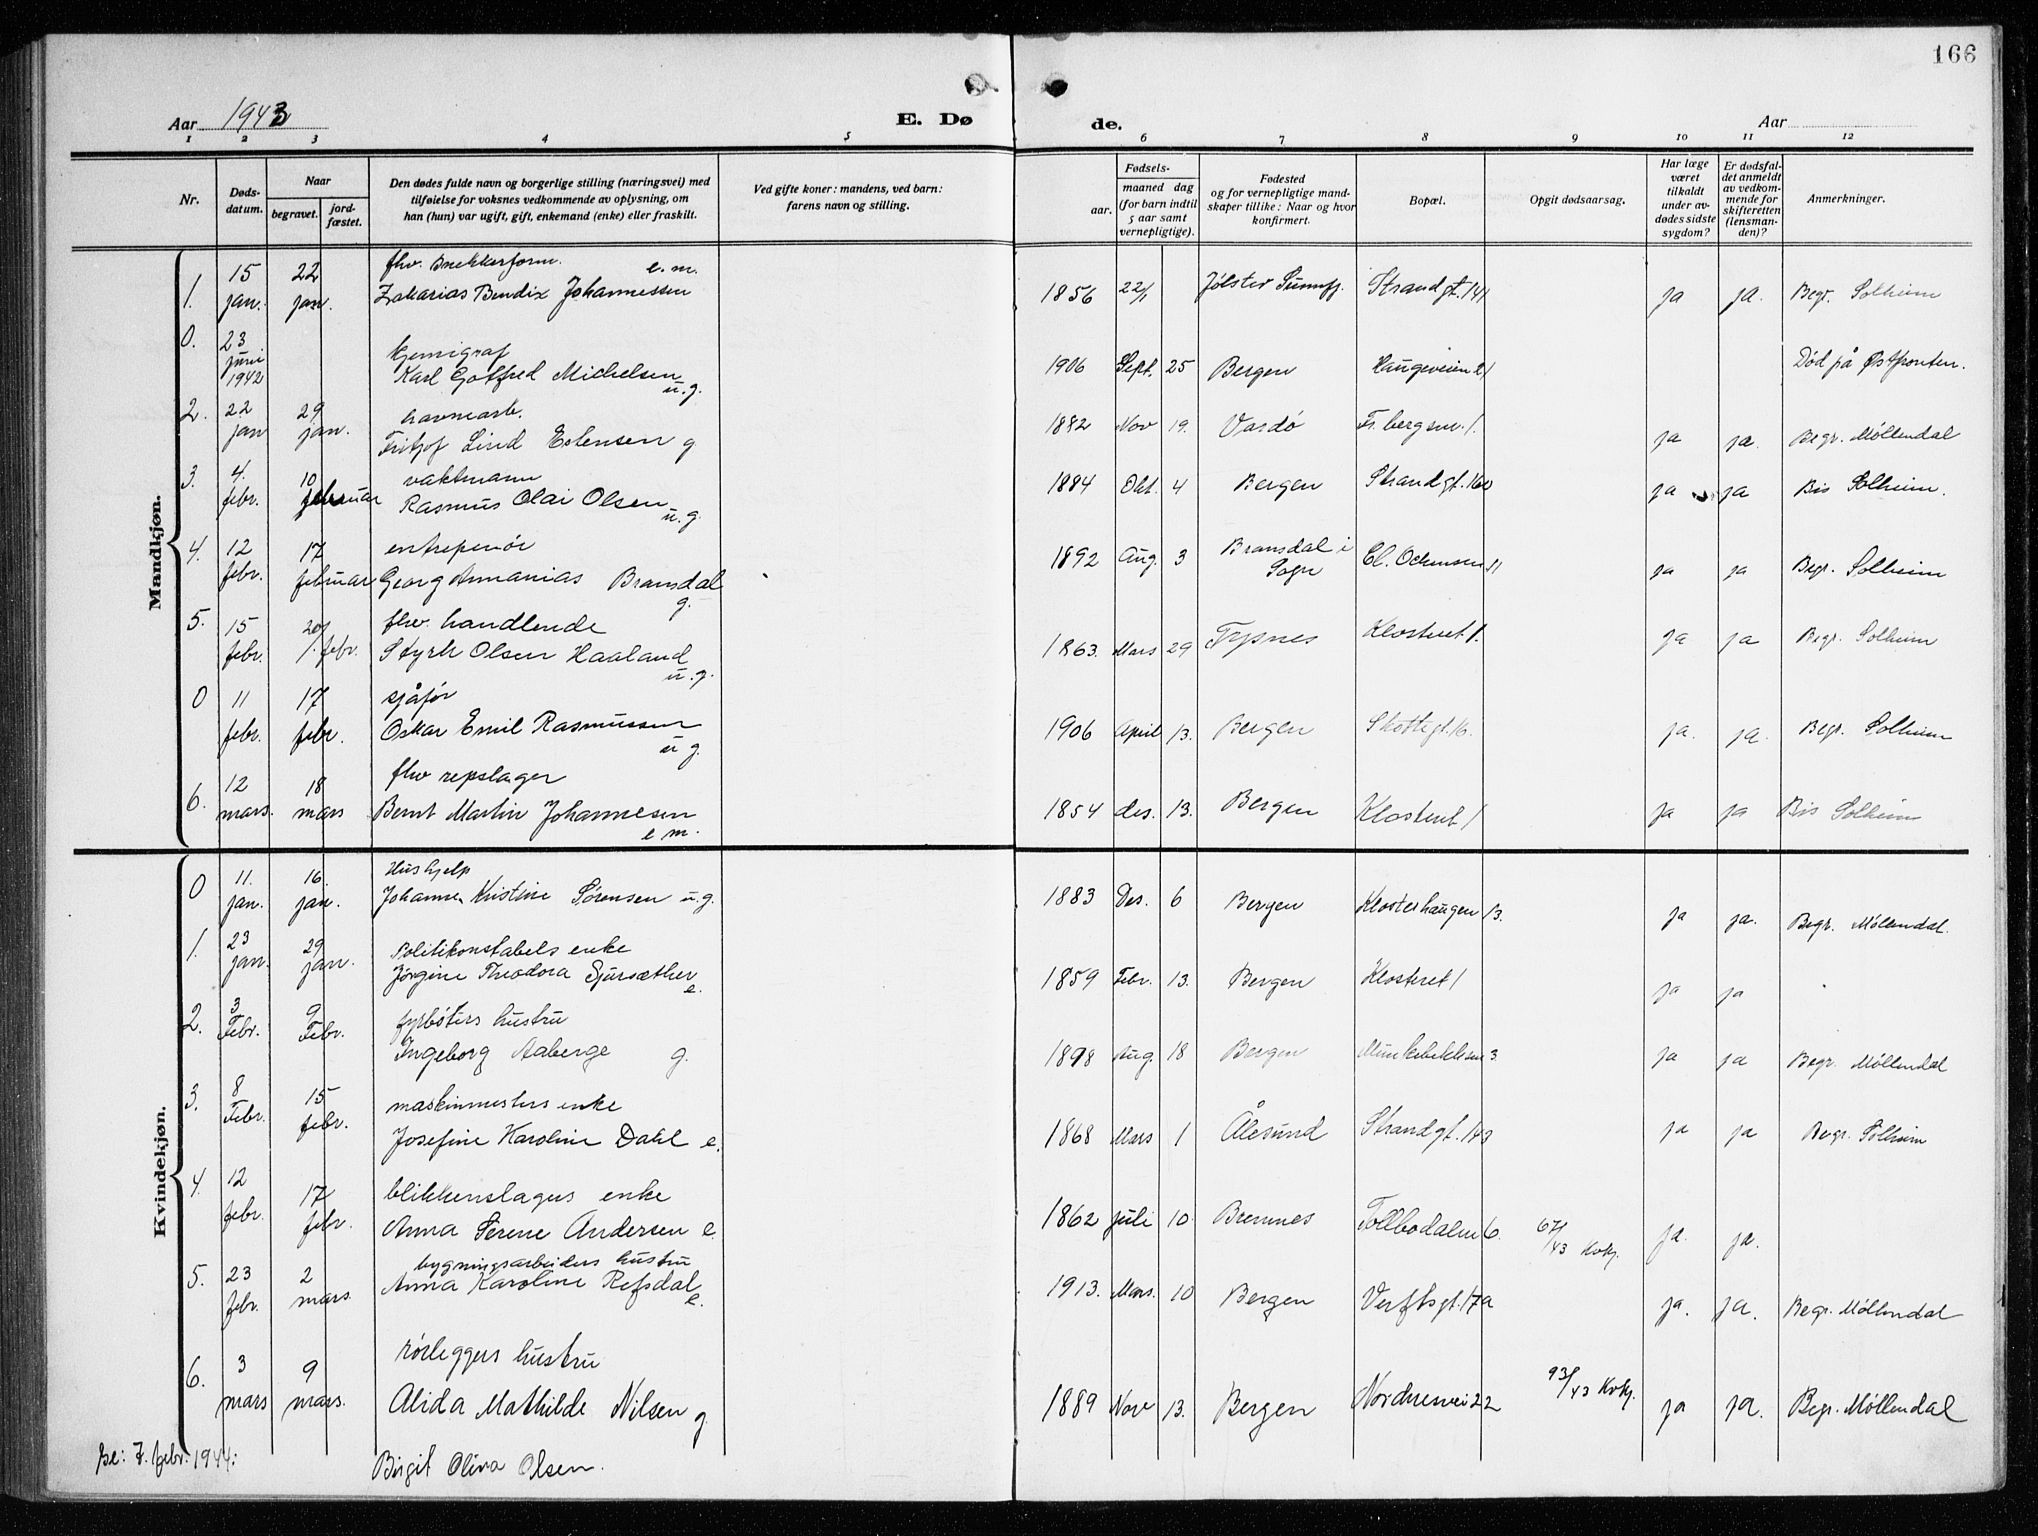 166
Aar 1943
E. Dø
de.
Aar
1 2 3 4 5 6 7 8 9 10 11 12
Nr.
Dødsdatum.
Naar
begravet.
jordfæstet.
Den dødes fulde navn og borgerlige stilling (næringsvei) med
tilføielse for voksnes vedkommende av oplysning, om
han (hun) var ugift, gift, enkemand (enke) eller fraskilt.
Ved gifte koner: mandens, ved barn:
farens navn og stilling.
Fødsels-
aar.
maaned dag
(for barn indtil
5 aar samt
vernepligtige).
Fødested
og for vernepligtige mand-
skaper tillike: Naar og hvor
konfirmert.
Bopæl.
Opgit dødsaarsag.
Har læge
været
tilkaldt
under av-
dødes sidste
sygdom?
Er dødsfal-
det anmeldt
av vedkom-
mende for
skifteretten
(lensman-
den)?
Anmerkninger.
Mandkjøn.
1. 15 jan. 22 jan. fhv. snekkerform. e.m.
Zakarias Bendix Johannessen 1856 22/1 Jølster Sunnfj. Strandgt. 141 ja ja. Begr. Solheim
0. 23 juni 1942 kjemigraf
Karl Gotfred Michelsen u.g. 1906 Sept. 25 Bergen Haugeveien 21 Død på Østfronten.
2. 22 jan 29 jan. havnearb.
Fritjof Lind Estensen g 1882 Nov 19. Vardø Fr. bergsm. 1. ja ja. Begr. Møllendal
3. 4. febr. 10 februar vaktmann
Rasmus Olai Olsen u.g. 1884 Okt. 4 Bergen Strandgt. 160 ja ja Bis Solheim.
4. 12 febr. 17 februar entrepenør
Georg Annanias Bransdal g. 1892 Aug. 3 Bransdal i Sogn Cl. Ockensen 11 ja ja Begr. Solheim
5. 15 febr. 20/ febr. fhv. handlende
Styrk Olsen Haaland u.g. 1863. Mars 29 Tysnes Klosteret 1. ja ja Begr. Solheim
0 11 febr. 17 febr. sjåfør
Oskar Emil Rasmussen u g. 1906 April 13. Bergen Skottegt. 16. ja. ja. Begr. Solheim
6. 12 mars. 18 mars fhv repslager
Bernt Martin Johannesen e m. 1854 des. 13. Bergen Klosteret 1 ja ja Bis Solheim
Kvindekjøn.
0 11. jan. 16. jan. Hushjelp
Johanne Kristine Sørensen u.g. 1883 Des. 6 Bergen Klosterhaugen 13. ja ja. Begr. Møllendal.
1. 23 jan. 29 jan. Politikonstabels enke
Jørgine Theodora Gjersæther e. 1859 Febr. 13. Bergen Klosteret 1 ja ja
2. 3 Febr. 9 Febr. fyrbøters hustru
Ingeborg Aaberge g. 1898 Aug. 18 Bergen Munkebekken 3. ja ja Begr. Møllendal
3. 8 Febr. 15 febr. maskinmesters enke
Josefine Karoline Dahl e. 1868 Mars 1 Ålesund Strandgt. 143 ja ja Begr. Solheim
4. 12 febr. 17 febr. blikkenslagers enke
Anna Serene Andersen e 1862 juli 10. Bremnes Tollbodalm 6. 67/43 Kvkj. ja. ja.
5. 23 febr. 2 mars bygningsarbeiders hustru
Anna Karoline Refsdal e. 1913. Mars. 10 Bergen Verftsgt. 17a ja. ja. Begr. Møllendal
6. 3 mars 9 mars. rørleggers hustru
Alida Mathilde Nilsen g 1889 Nov 13. Bergen Nordnesvei 22 93/43 Kvkj. ja ja. Begr. Møllendal
se: 7. febr. 1944: Birgit Oliva Olsen.